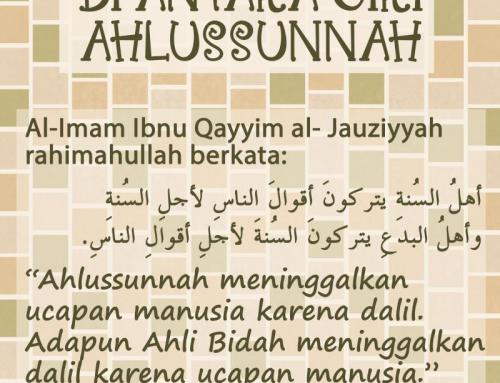 DI ANTARA CIRI
AHLUSSUNNAH
Al-Imam Ibnu Qayyim al- Jauziyyah
rahimahullah berkata:
أهلُ السُنةِ يتركونَ أقوالَ الناسِ لأجلِ السُنة
وأهلُ البدَعِ يتركونَ السُنةَ لأجلِ أقوالِ الناسِ.
“Ahlussunnah meninggalkan
ucapan manusia karena dalil.
Adapun Ahli Bidah meninggalkan
dalil karena ucapan manusia.”